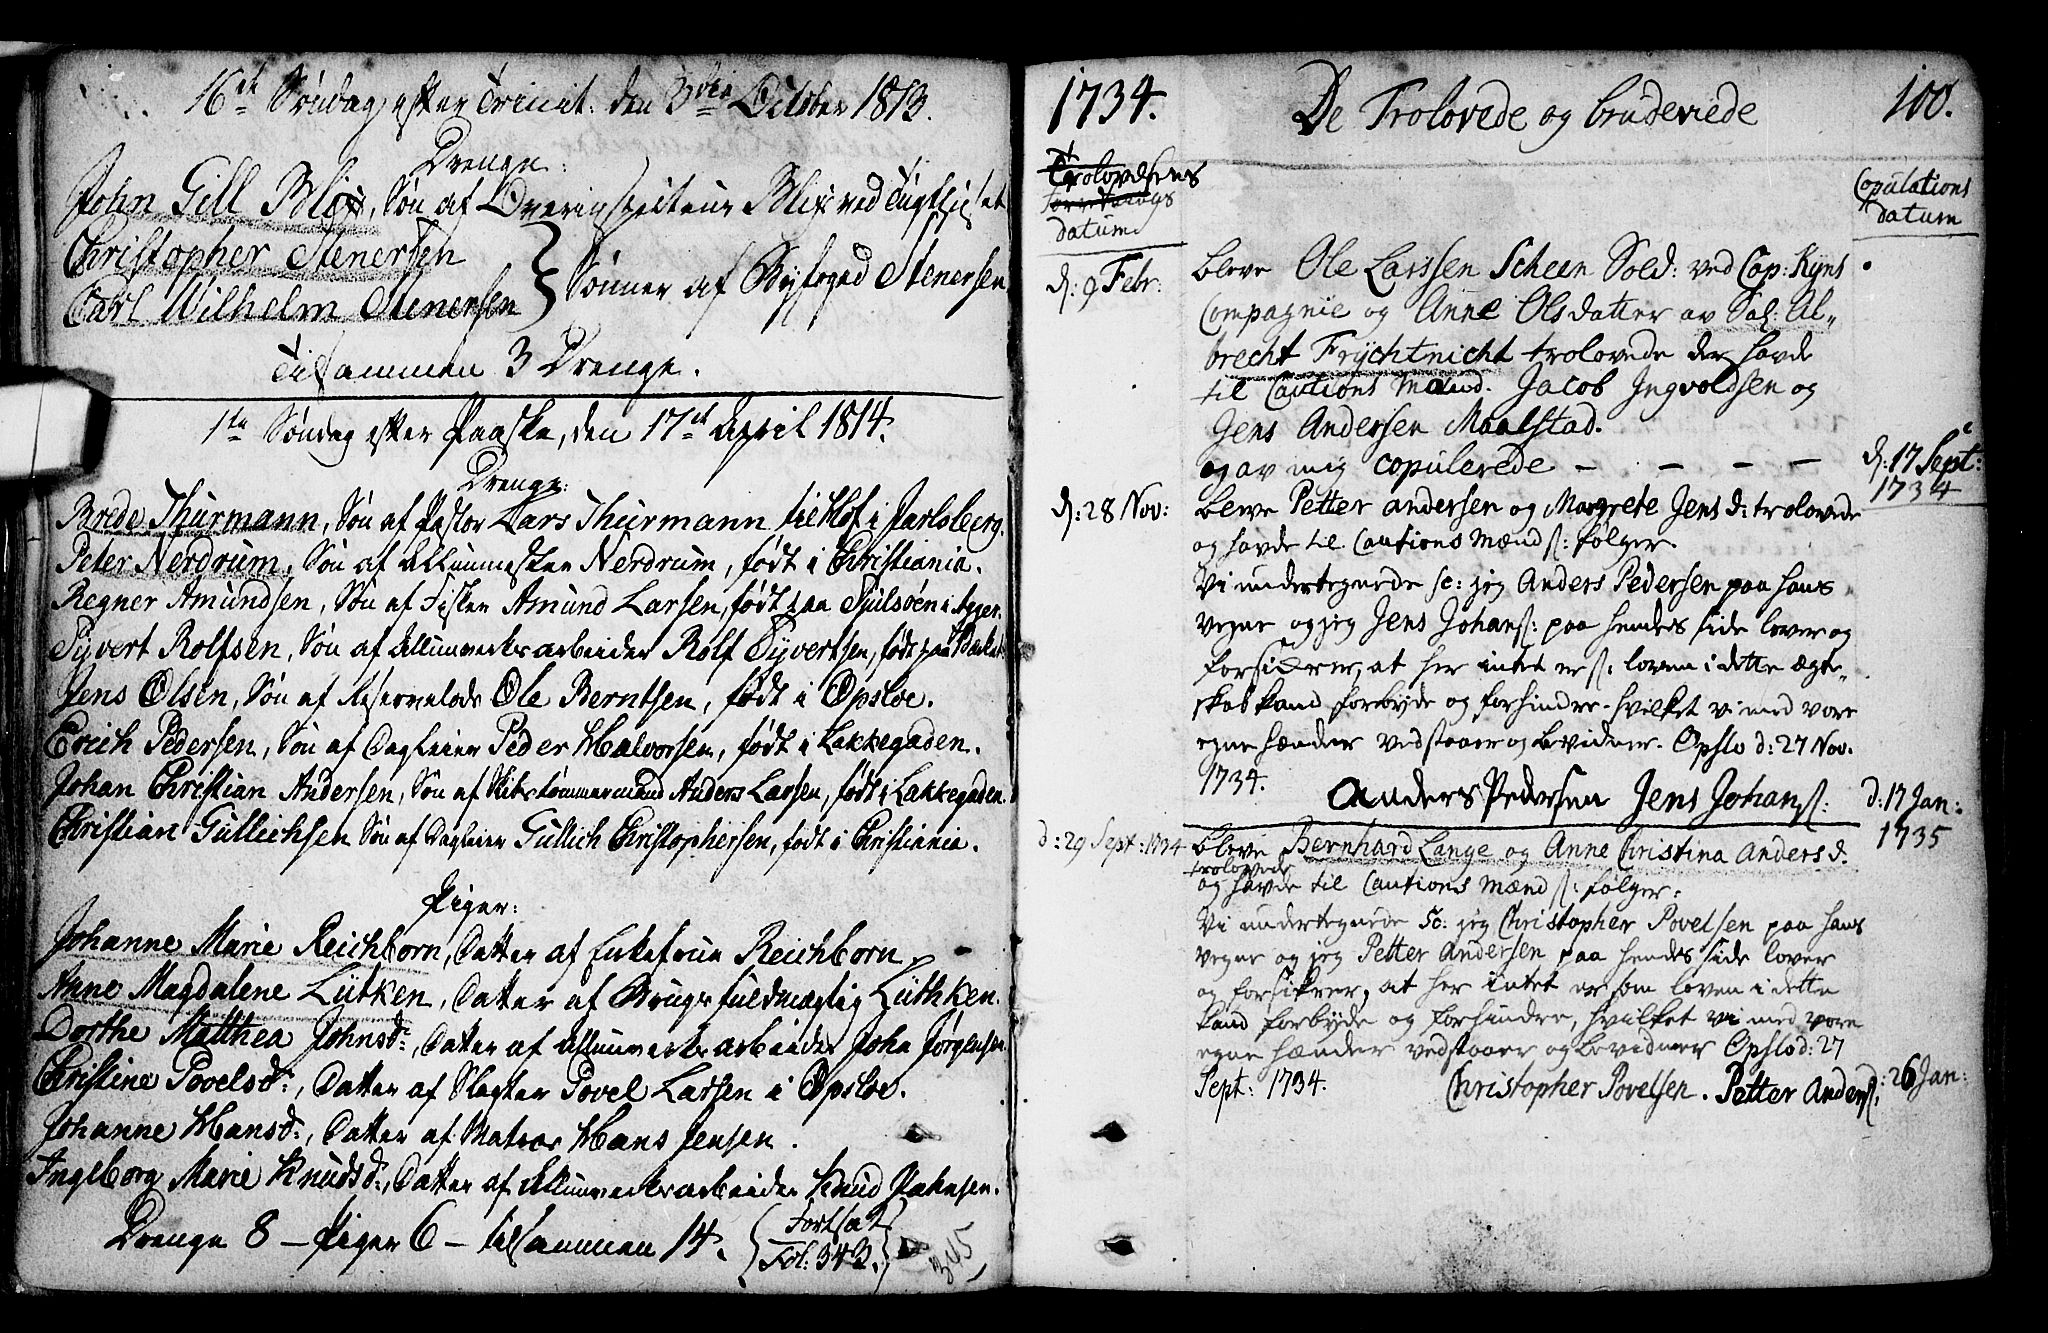 16de Søndag efter Trinit: den 3die October 1813.
Drenge:
John Gill Blix, Søn af Overinspecteur Blix ved Tugthuset
Christopher Stenersen
Carl Wilhelm Stenersen } Sønner af Byfoged Stenersen
Tilsammen 3 Drenge.
1te Søndag efter Paaske, den 17de April 1814.
Drenge:
Brede Thurmann, Søn af Pastor Lars Thurmann til Hof i Jarlsberg.
Peter Nerdrum, Søn af Allunmester Nerdrum, født i Christiania.
Regner Amundsen, Søn af Fisker Amund Larsen, født paa i Agger.
Syvert Rolfsen, Søn af Allunverksarbeider Rolf Syvertsen, født paa
Jens Olsen, Søn af Ole Berntsen, født i Opsloe.
Erich Pedersen, Søn af Dagleier Peder Halvorsen, født i Lakkegaden.
Johan Christian Andersen, Søn af Skibstømmermand Anders Larsen, født i Lakkegaden.
Christian Gullichsen Søn af Dagleier Gullich Christophersen, født i Christiania.
Piger:
Johanne Marie Reichborn, Datter af Enkefrue Reichborn.
Anne Magdalene Lütken, Datter af Brugsfuldmægtig Lüthken.
Dorthe Matthea Johnsd:, Datter af Allunverksarbeider John Jørgensen
Christine Povelsd:, Datter af Slagter Povel Larsen i Opsloe.
Johanne Hansd:, Datter af Matros Hans Jensen.
Ingeborg Marie Knudsd:, Datter af Allunverksarbeider Knud Johnsen.
Drenge 8 – Piger 6 – tilsammen 14. { Fortsat
Fol: 343. }
345
1734. De Trolovede og brudeviede 100.
Trolovelsens
datum
Copulations
datum
d: 9 Febr: bleve Ole Larssen Scheen Sold: ved Cap: Kyns
Compagnie og Anne Olsdatter av Sal: Al-
brecht Frychtnicht trolovede der havde
til Cautions mænd. Jacob Ingvoldsen og
Jens Andersen Maalstad.
og av mig copulerede – – – – d: 17 Sept:
1734
d: 28 Nov: bleve Petter Andersen og Margrete Jens d: trolovede
og havde til Cautions mænd s: følger.
Vi undertegnede sc: jeg Anders Pedersen paa hans
vegne og jeg Jens Johans: paa hendes side lover og
forsikrer, at her intet er s: loven i dette ægte-
skab kand forbyde og forhindre. hvilket vi med vore
egne hænder vedstaaer og bevidner. Opslo d: 27 Nov.
1734.
Anders Pedersen Jens Johans: d: 17 Jan:
1735
d: 29 Sept: 1734 bleve Bernhard Lange og Anne Christina Anders d.
trolovede
og havde til Cautions mænd s: følger:
Vi undertegnede Sc: jeg Christopher Povelsen paa hans
vegne og jeg Petter Andersen paa hendes side lover
og forsikrer, at her intet er som loven i dette
kand forbyde og forhindre, hvilket vi med vore
egne hænder vedstaaer og bevidner Opslo d: 27
Sept: 1734. Christopher Povelsen. Petter Anders: d: 26 Jan: